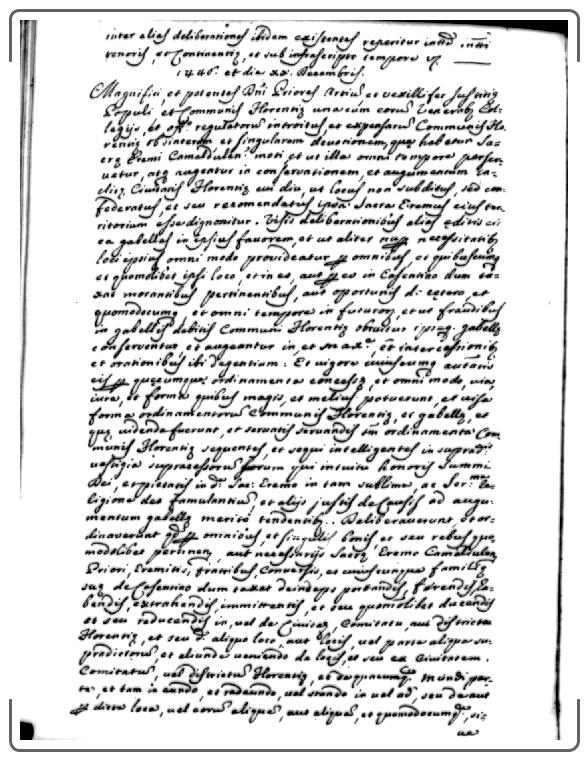 inter alias deliberationes ibidem existentes reperitur
tenoris, et Continentiæ, et sub infrascripto tempore
1446. et die xx. Decembris.
Magnifici, et potentes Dñi Priores Artiũ et vexillifer Justitiæ
Populi et Communis Florentiæ una cum eorũ Venerab. Col-
legijs, et regulatorũ introitus et expensarũ Communis Flo-
rentiæ ob sinceram et singularem devotionem, quã habet ur Sa-
cræ Eremi Camaldulen. moti et ut illa omni tempore perser-
vetur, atq augeatur in conservationem, et augumentum in-
clitæ Civitatis Florentiæ cui diu, ut locus non subditus, sed con-
federatus, et seu recomendatus ipsa Sacra Eremus eius ter-
ritorium esse dignoscitur. Visis deliberationibus alias editis ci
ca gabellas in ipsius favorem, et ut aliter necessitatib
loci ipsius omni modo provideatur omnibus, et quibuscunq
et quomodolibet ipsi loco, et in es, aut eo in Casentino dum ta-
xat morantibus pertinentibus, aut oportunis de cetero, et
quomodocumq et omni tempore in futurum, et ut fraudibus
in gabellis debitis Communi Florentiæ obvietur gabellæ
conserventur et augeantur in et intercessionib
et orationibus ibi degentium: Et vigore cuiuscumq autatis
eis quæcumque ordinamenta concessæ, et omni modo, via,
iure, et forma quibus magis, et melius potuerunt, et visa
forma ordinamentorum Communis Florentiæ, et gabellæ, et
quæ videnda fuerunt, et servatis servandis ordinamenta Com
munis Florentiæ sequentes, et sequi intelligentes in supradictis
vestigia supracessorũ suorum qui intuitu honoris Summi
Dei, et pietatis in Sac. Eremo in tam sublime, ac Ser. Re-
ligione deo famulantiũ et alijs justis de Causis ad augu-
mentum gabellæ merito tendentib. Deliberaverunt, et or-
dinaverunt omnibus, et singulis bonis et seu rebus quo
modolibet pertinen, aut necessarijs Sacræ Eremo Camaldulen,
Priori, Eremitis, fratribus, Conversis, et cuiuscunque familiæ
suæ de Casentino dum taxat deinceps portandis, ferendis, ha-
bendis, extrahendis, immittentis, et seu quomolibet ducendis
et seu reducendis in, vel de Civitate, Comitatu, aut districtu
Florentiæ, et seu aliquo loco, aut locis, vel parte aliqua su-
pradictorũ, et aliunde veniendo de locis, et seu ex Civitatem,
Comitatus, vel districtus Florentiæ, et de quacumq. mundi par-
te, et tam in eundo, et redeundo, vel stando in vel ad, seu de aut
dicta loca, vel eorũ aliqua, aut alique, et quomodocumq, si-
ve